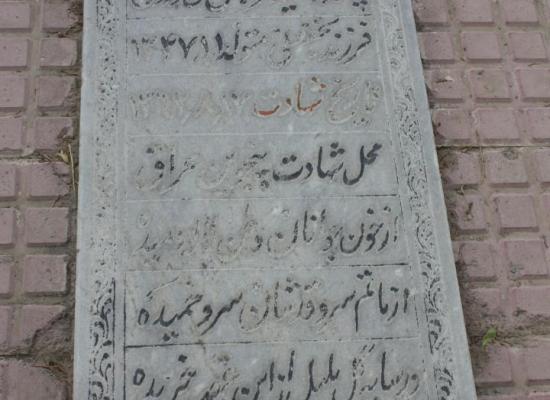 فرزند متولد
تاریخ شهادت
محل شهادت پنجوین عراق
از خون جوانان وطن لاله دمیده
از ماتم سرو قدشان سرو خمیده
در سایه گل بلبل از این غصه خزیده